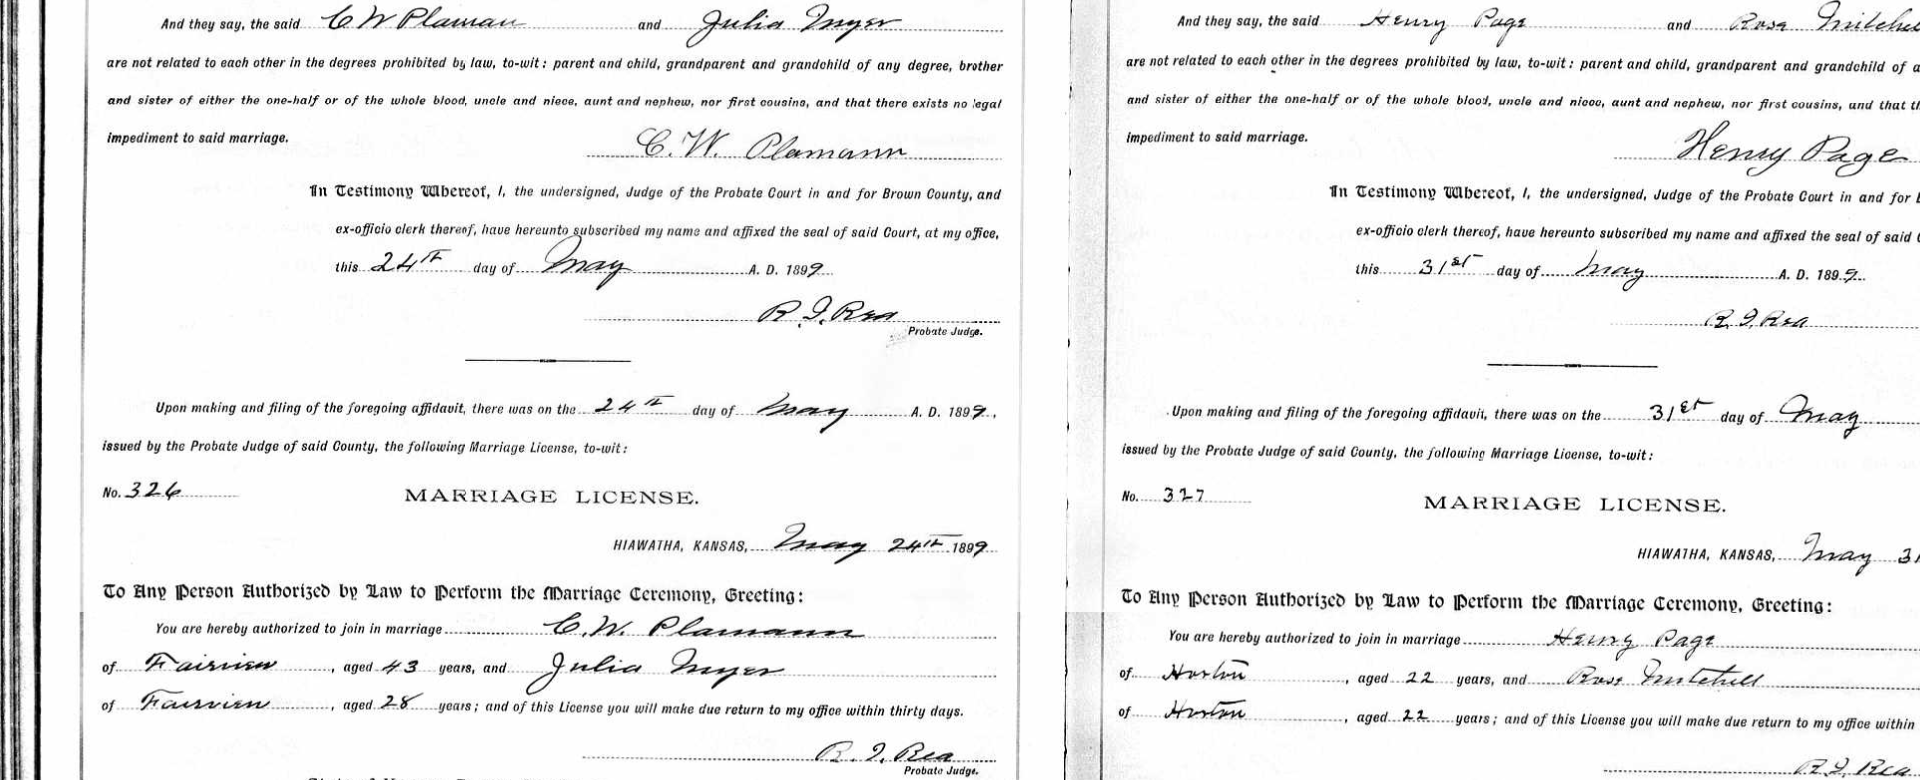 And they say, the said C W Plaman and Julia Myer
are not related to each other in the degrees prohibited by law, to-wit: parent and child, grandparent and grandchild of any degree, brother
and sister of either the one-half or of the whole blood, uncle and niece, aunt and nephew, nor first cousins, and that there exists no legal
impediment to said marriage.
C. W. Plamann
In Testimony Whereof, I, the undersigned, Judge of the Probate Court in and for Brown County, and
ex-officio clerk thereof, have hereunto subscribed my name and affixed the seal of said Court, at my office,
this 24th day of May A. D. 1899
R. I. Rea
Probate Judge.
Upon making and filing of the foregoing affidavit, there was on the 24th day of May A. D. 1899,
issued by the Probate Judge of said County, the following Marriage License, to-wit:
No. 326 MARRIAGE LICENSE.
HIAWATHA, KANSAS, May 24th 1899
To Any Person Authorized by Law to Perform the Marriage Ceremony, Greeting:
You are hereby authorized to join in marriage C. W. Plamann
of Fairview, aged 43 years, and Julia Myer
of Fairview, aged 28 years; and of this License you will make due return to my office within thirty days.
R. I. Rea
Probate Judge.
And they say, the said Henry Page and Rose Mitchel
are not related to each other in the degrees prohibited by law, to-wit: parent and child, grandparent and grandchild of a
and sister of either the one-half or of the whole blood, uncle and niece, aunt and nephew, nor first cousins, and that th
impediment to said marriage.
Henry Page
In Testimony Whereof, I, the undersigned, Judge of the Probate Court in and for
ex-officio clerk thereof, have hereunto subscribed my name and affixed the seal of said
this 31st day of May A. D. 1899.
R. I. Rea
Upon making and filing of the foregoing affidavit, there was on the 31st day of May
issued by the Probate Judge of said County, the following Marriage License, to-wit:
No. 327 MARRIAGE LICENSE.
HIAWATHA, KANSAS, May 31
To Any Person Authorized by Law to Perform the Marriage Ceremony, Greeting:
You are hereby authorized to join in marriage Henry Page
of Horton, aged 22 years, and Rose Mitchell
of Horton, aged 22 years; and of this License you will make due return to my office within
R. I. Rea